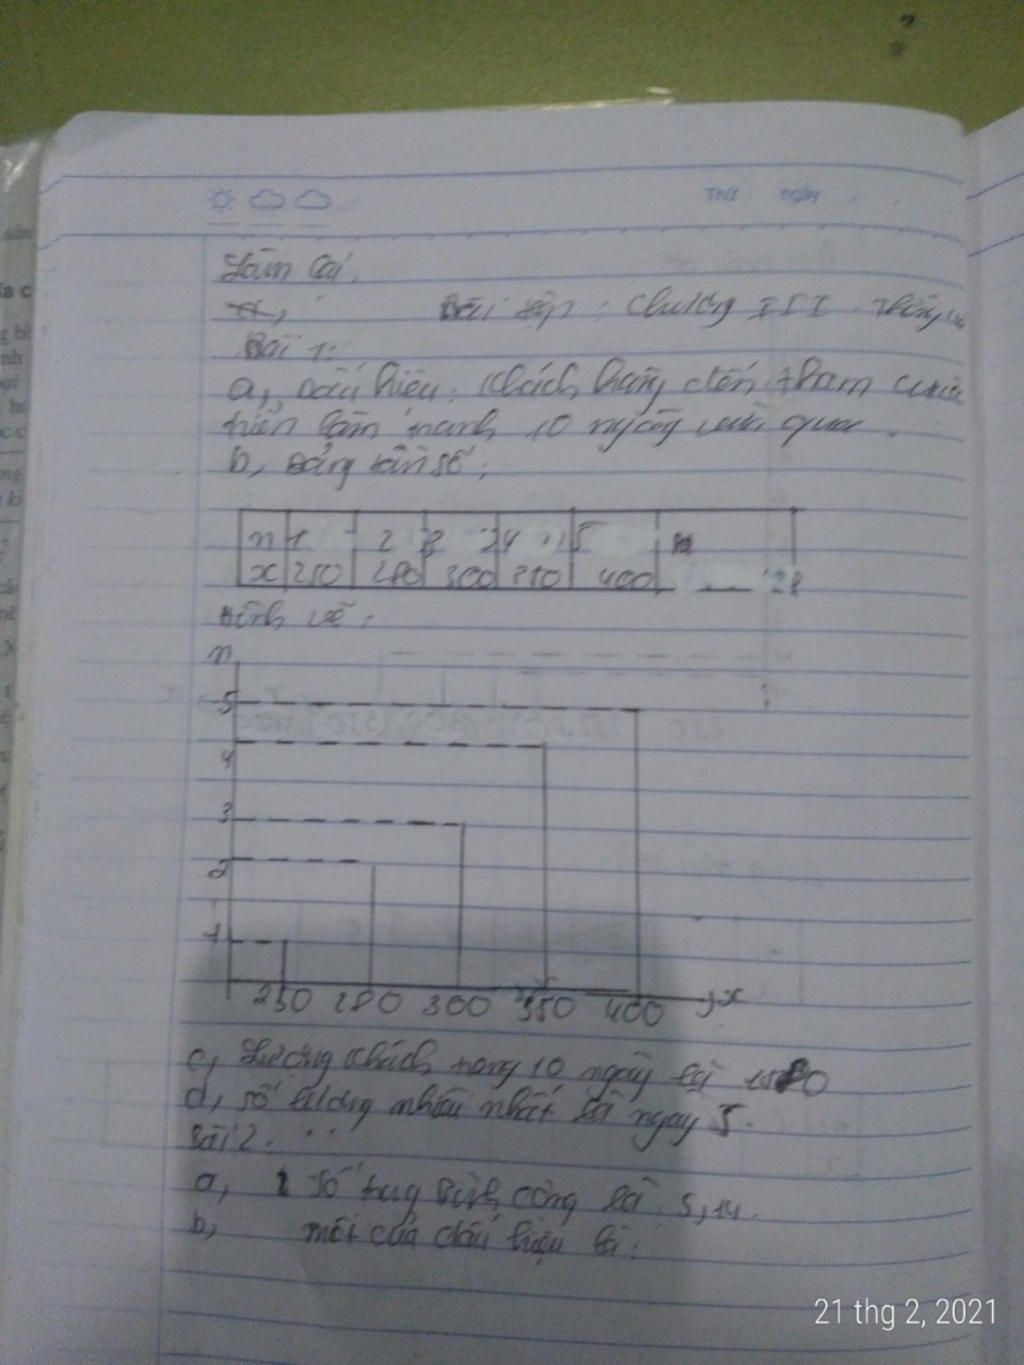 Thứ ngày
Làm lại.
a, Bài tập: Chương III. Thống
Bài 1:
a, Dấu hiệu: Khách hàng đến tham
triển lãm tranh 10 ngày vừa qua.
b, Bảng tần số:
n 1 2 3 4 5
x 250 280 300 350 400
Hình vẽ:
n
5
4
3
2
1
250 280 300 350 400 x
c, Lượng khách trong 10 ngày là
d, số lượng nhiều nhất là ngày 5.
Bài 2:
a, số trung bình cộng là 5,14.
b, mốt của dấu hiệu là:
21 thg 2, 2021